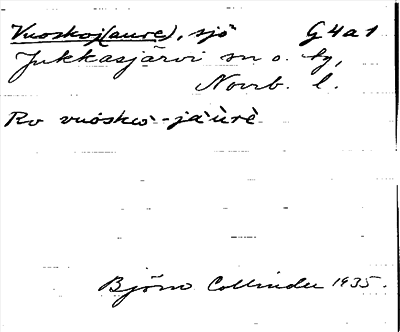 Vuoskoj(aure), sjö G4a1
Jukkasjärvi sn o. tg,
Norrb. l.
Rv vuos̀kò-jàùrè
Björn Collinder 1935.